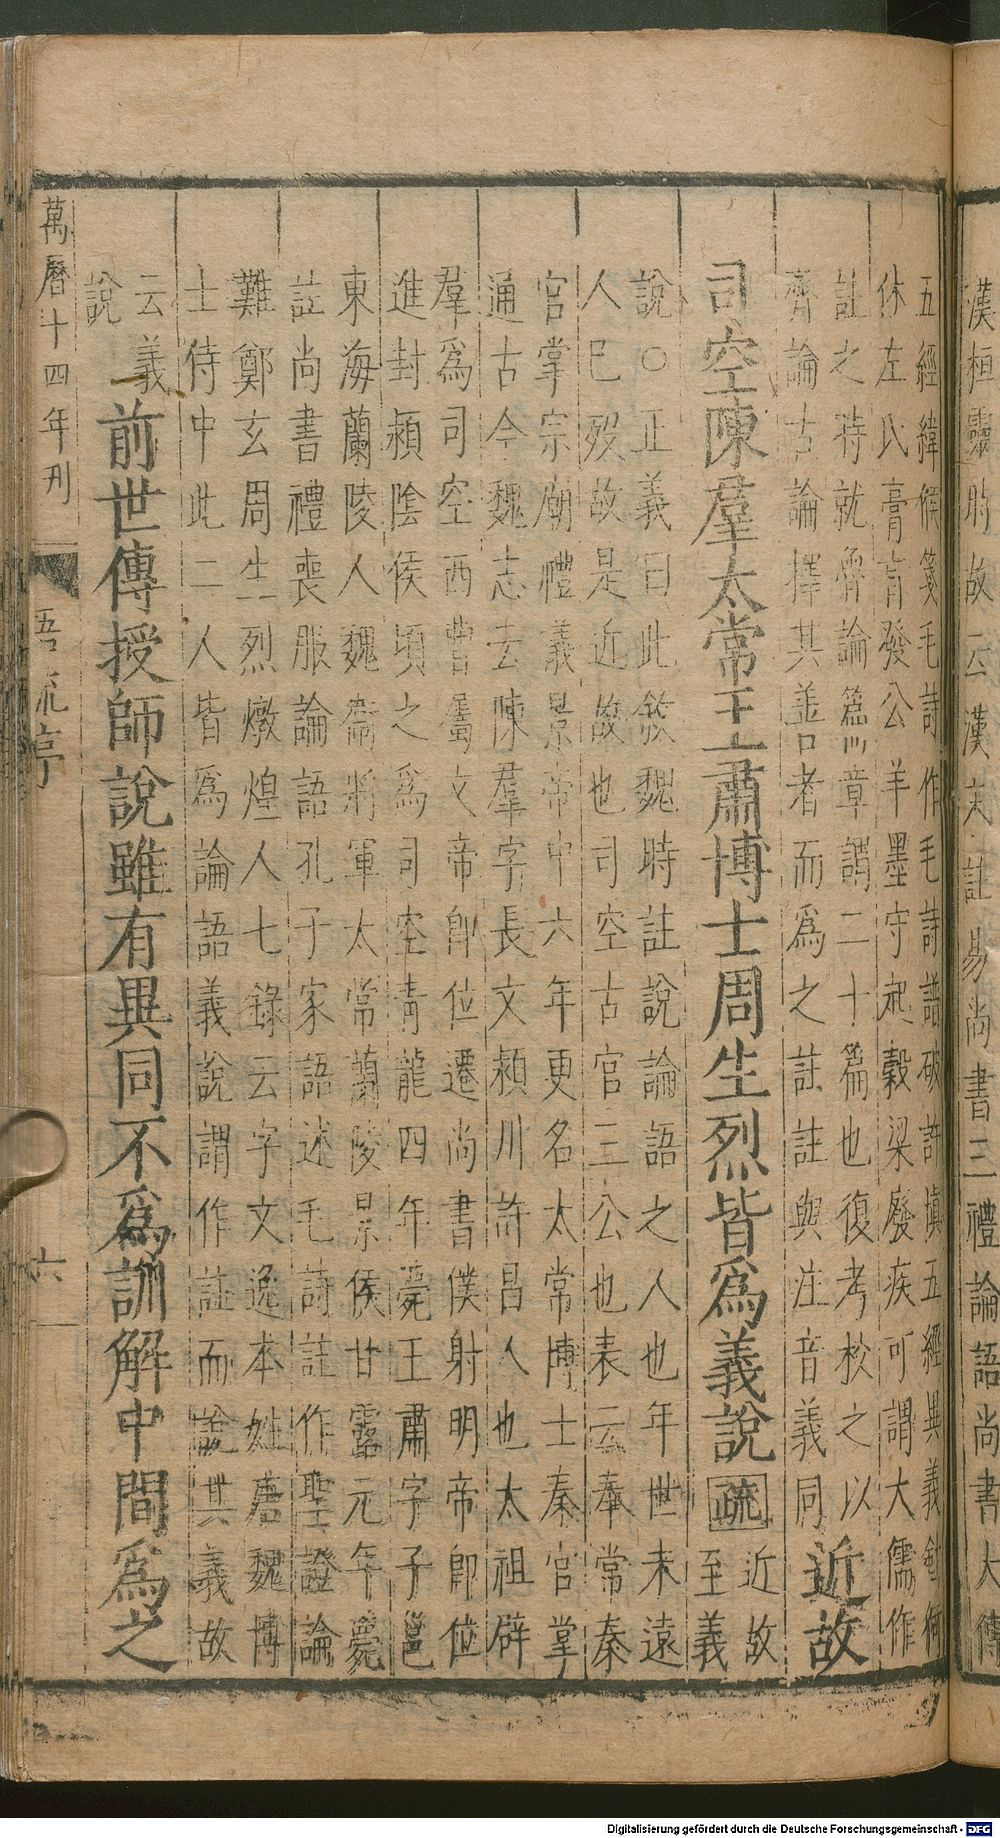 漢桓靈時故云漢末註易尚書三禮論語尚書大傳
五經緯候箋毛詩作毛詩譜破許慎五經異義針何
休左氏膏肓發公羊墨守起穀梁廢疾可謂大儒作
註之時就魯論篇章謂二十篇也復考校之以
齊論古論擇其善者而為之註註與注音義同
近故
司空陳羣太常王肅博士周生烈皆為義說
疏
近故
至義
說○正義曰此敘魏時註說論語之人也年世未遠
人已歿故是近故也司空古官三公也表云奉常秦
官掌宗廟禮義景帝中六年更名太常博士秦官掌
通古今魏志云陳羣字長文潁川許昌人也太祖辟
羣為司空西曹屬文帝即位遷尚書僕射明帝即位
進封潁陰侯頃之為司空青龍四年薨王肅字子邕
東海蘭陵人魏衛將軍太常蘭陵景侯甘露元年薨
註尚書禮喪服論語孔子家語述毛詩註作聖證論
難鄭玄周生烈燉煌人七錄云字文逸本姓唐魏博
士侍中此二人皆為論語義說謂作註而說其義故
云義
說
前世傳授師說雖有異同不為訓解中間為之
萬曆十四年刊
語疏序
六
Digitalisierung gefördert durch die Deutsche Forschungsgemeinschaft - DFG